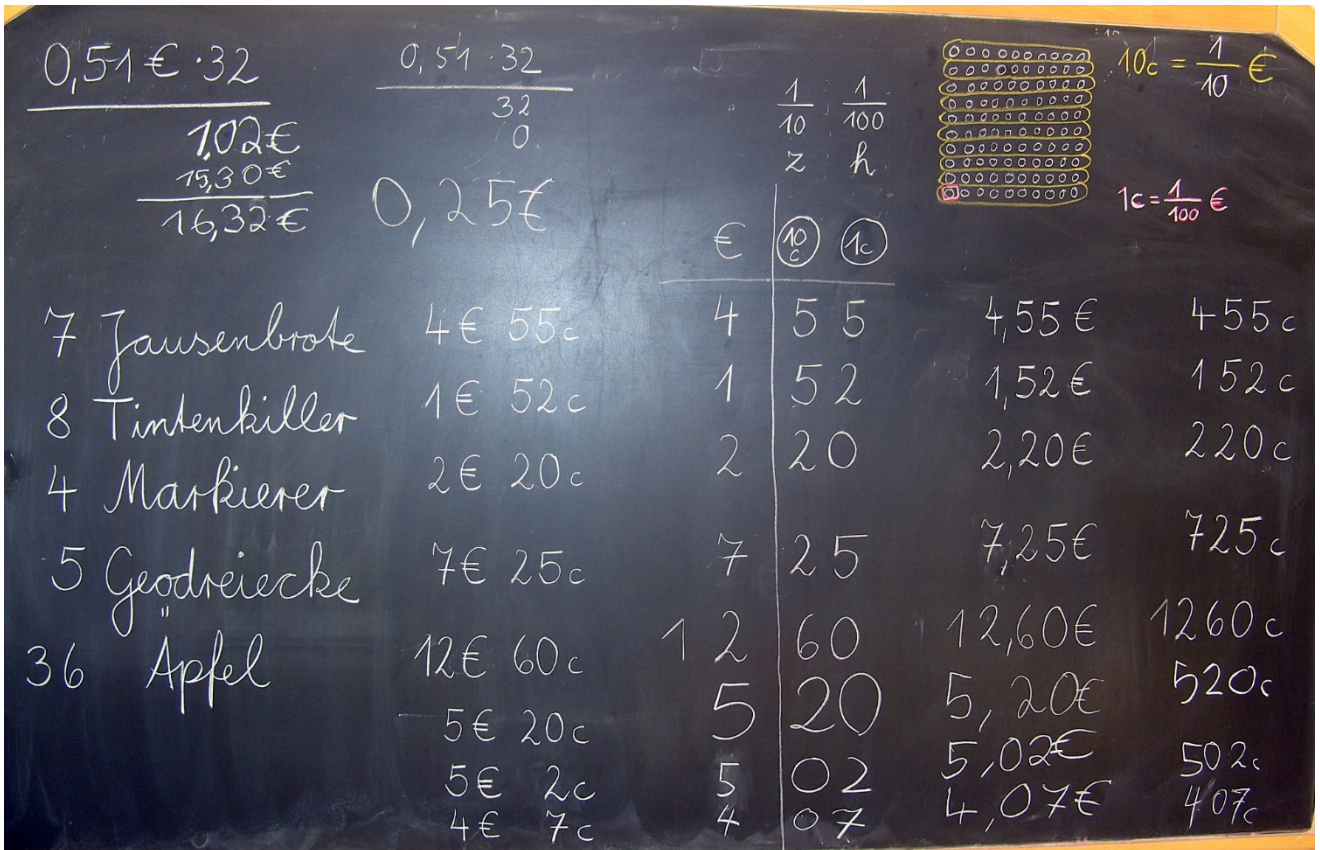 0,51€ · 32
1,02€
15,30€
16,32€
0,51 · 32
32
0
0,25€
1/10 1/100
z h
€ 10c 1c
10c = 1/10 €
1c = 1/100 €
7 Jausenbrote 4€ 55c 4 55 4,55€ 455c
8 Tintenkiller 1€ 52c 1 52 1,52€ 152c
4 Markierer 2€ 20c 2 20 2,20€ 220c
5 Geodreiecke 7€ 25c 7 25 7,25€ 725c
36 Äpfel 12€ 60c 12 60 12,60€ 1260c
5€ 20c 5 20 5,20€ 520c
5€ 2c 5 02 5,02€ 502c
4€ 7c 4 07 4,07€ 407c